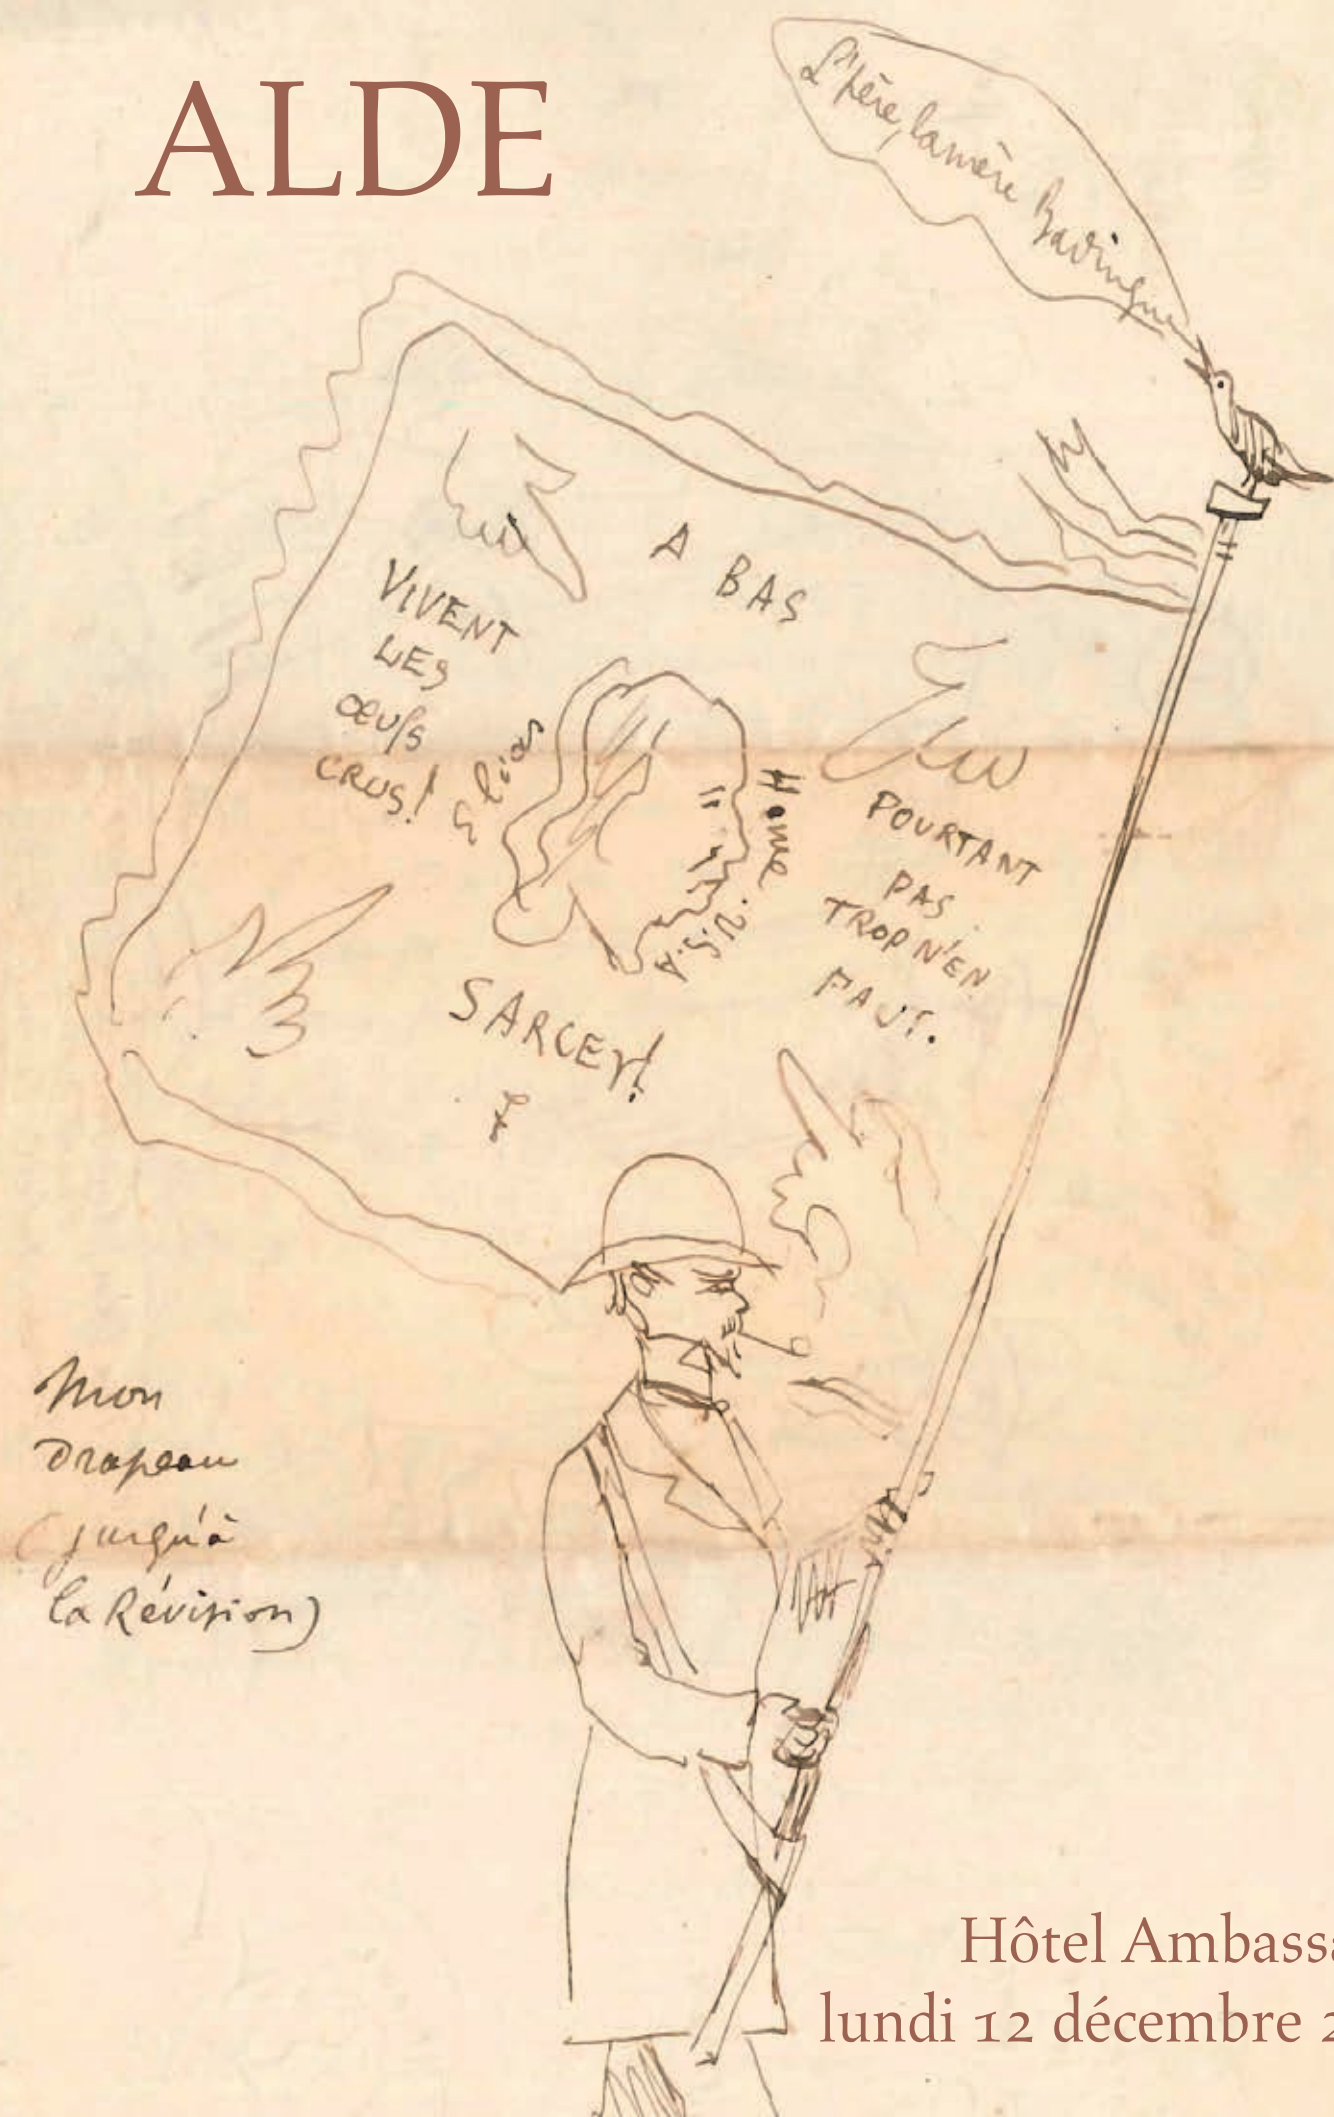 ALDE
L'père, la mère Badingue
A BAS
VIVENT
LES
ŒUFS
CRUS!
Elias
Howe
U.S.A
POURTANT
PAS
TROP N'EN
FAUT.
SARCEY!
Mon
Drapeau
(jusqu'à
la Révision)
Hôtel Ambass
lundi 12 décembre 2